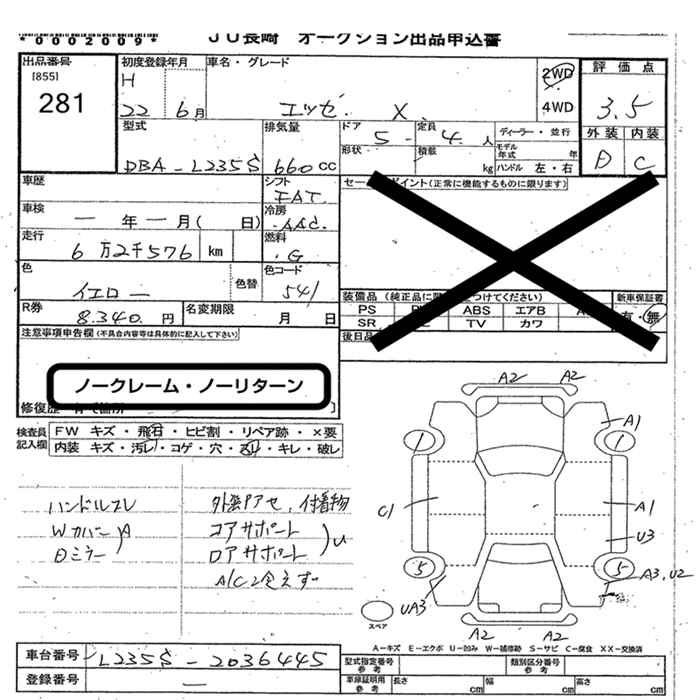 *0002009*
JU長崎 オークション出品申込書
出品番号
[855]
281
初度登録年月
H
22 6月
車名・グレード
エッセ X
2WD
4WD
評価点
3.5
外装 内装
D C
型式
DBA-L235S
排気量
660cc
ドア 5
形状
定員 4人
積載 kg
ディーラー・並行
モデル年式 年
ハンドル 左・右
車歴
シフト
FAT
車検
一年一月( 日)
冷房
AAC
走行
6万2千576 km
燃料
G
色
イエロー
色替
色コード
541
R券
8.340円
名変期限
月 日
セールスポイント(正常に機能するものに限ります)
装備品(純正品に
つけてください)
新車保証書
有・無
PS
ABS
エアB
SR
TV
カワ
後日品
注意事項申告欄(不具合内容等は具体的に記入して下さい)
ノークレーム・ノーリターン
修復歴
検査員記入欄
FW キズ・飛石・ヒビ割・リペア跡・×要
内装 キズ・汚レ・コゲ・穴・スレ・キレ・破レ
ハンドルスレ
Wカバー
Dミラー
A
外装色アセ、付着物
コアサポート
ロアサポート
U
A/C冷えず
A2 A2
A1
1 1
C1
A1
U3
5 5
A3,U2
UA3
A2 A2
スペア
A-キズ E-エクボ U-凹み W-補修跡 S-サビ C-腐食 XX-交換済
車台番号
L235S-2036445
登録番号
一
型式指定番号参考
類別区分番号参考
車庫証明用参考
長さ cm
幅 cm
高さ cm